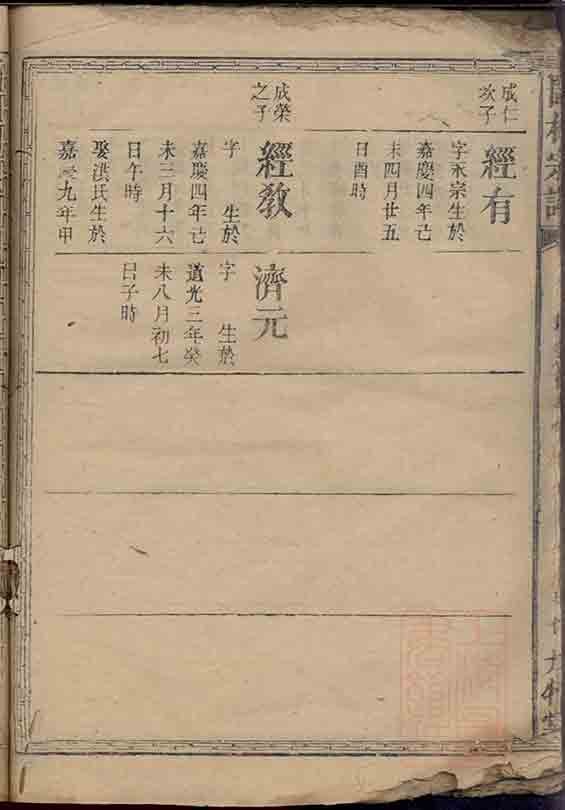 成仁
次子
經有
字永宗生於
嘉慶四年己
未四月廿五
日酉時
成榮
之子
經教
字 生於
嘉慶四年己
未三月十六
日午時
娶洪氏生於
嘉慶九年甲
濟元
字 生於
道光三年癸
未八月初七
日子時
宗譜